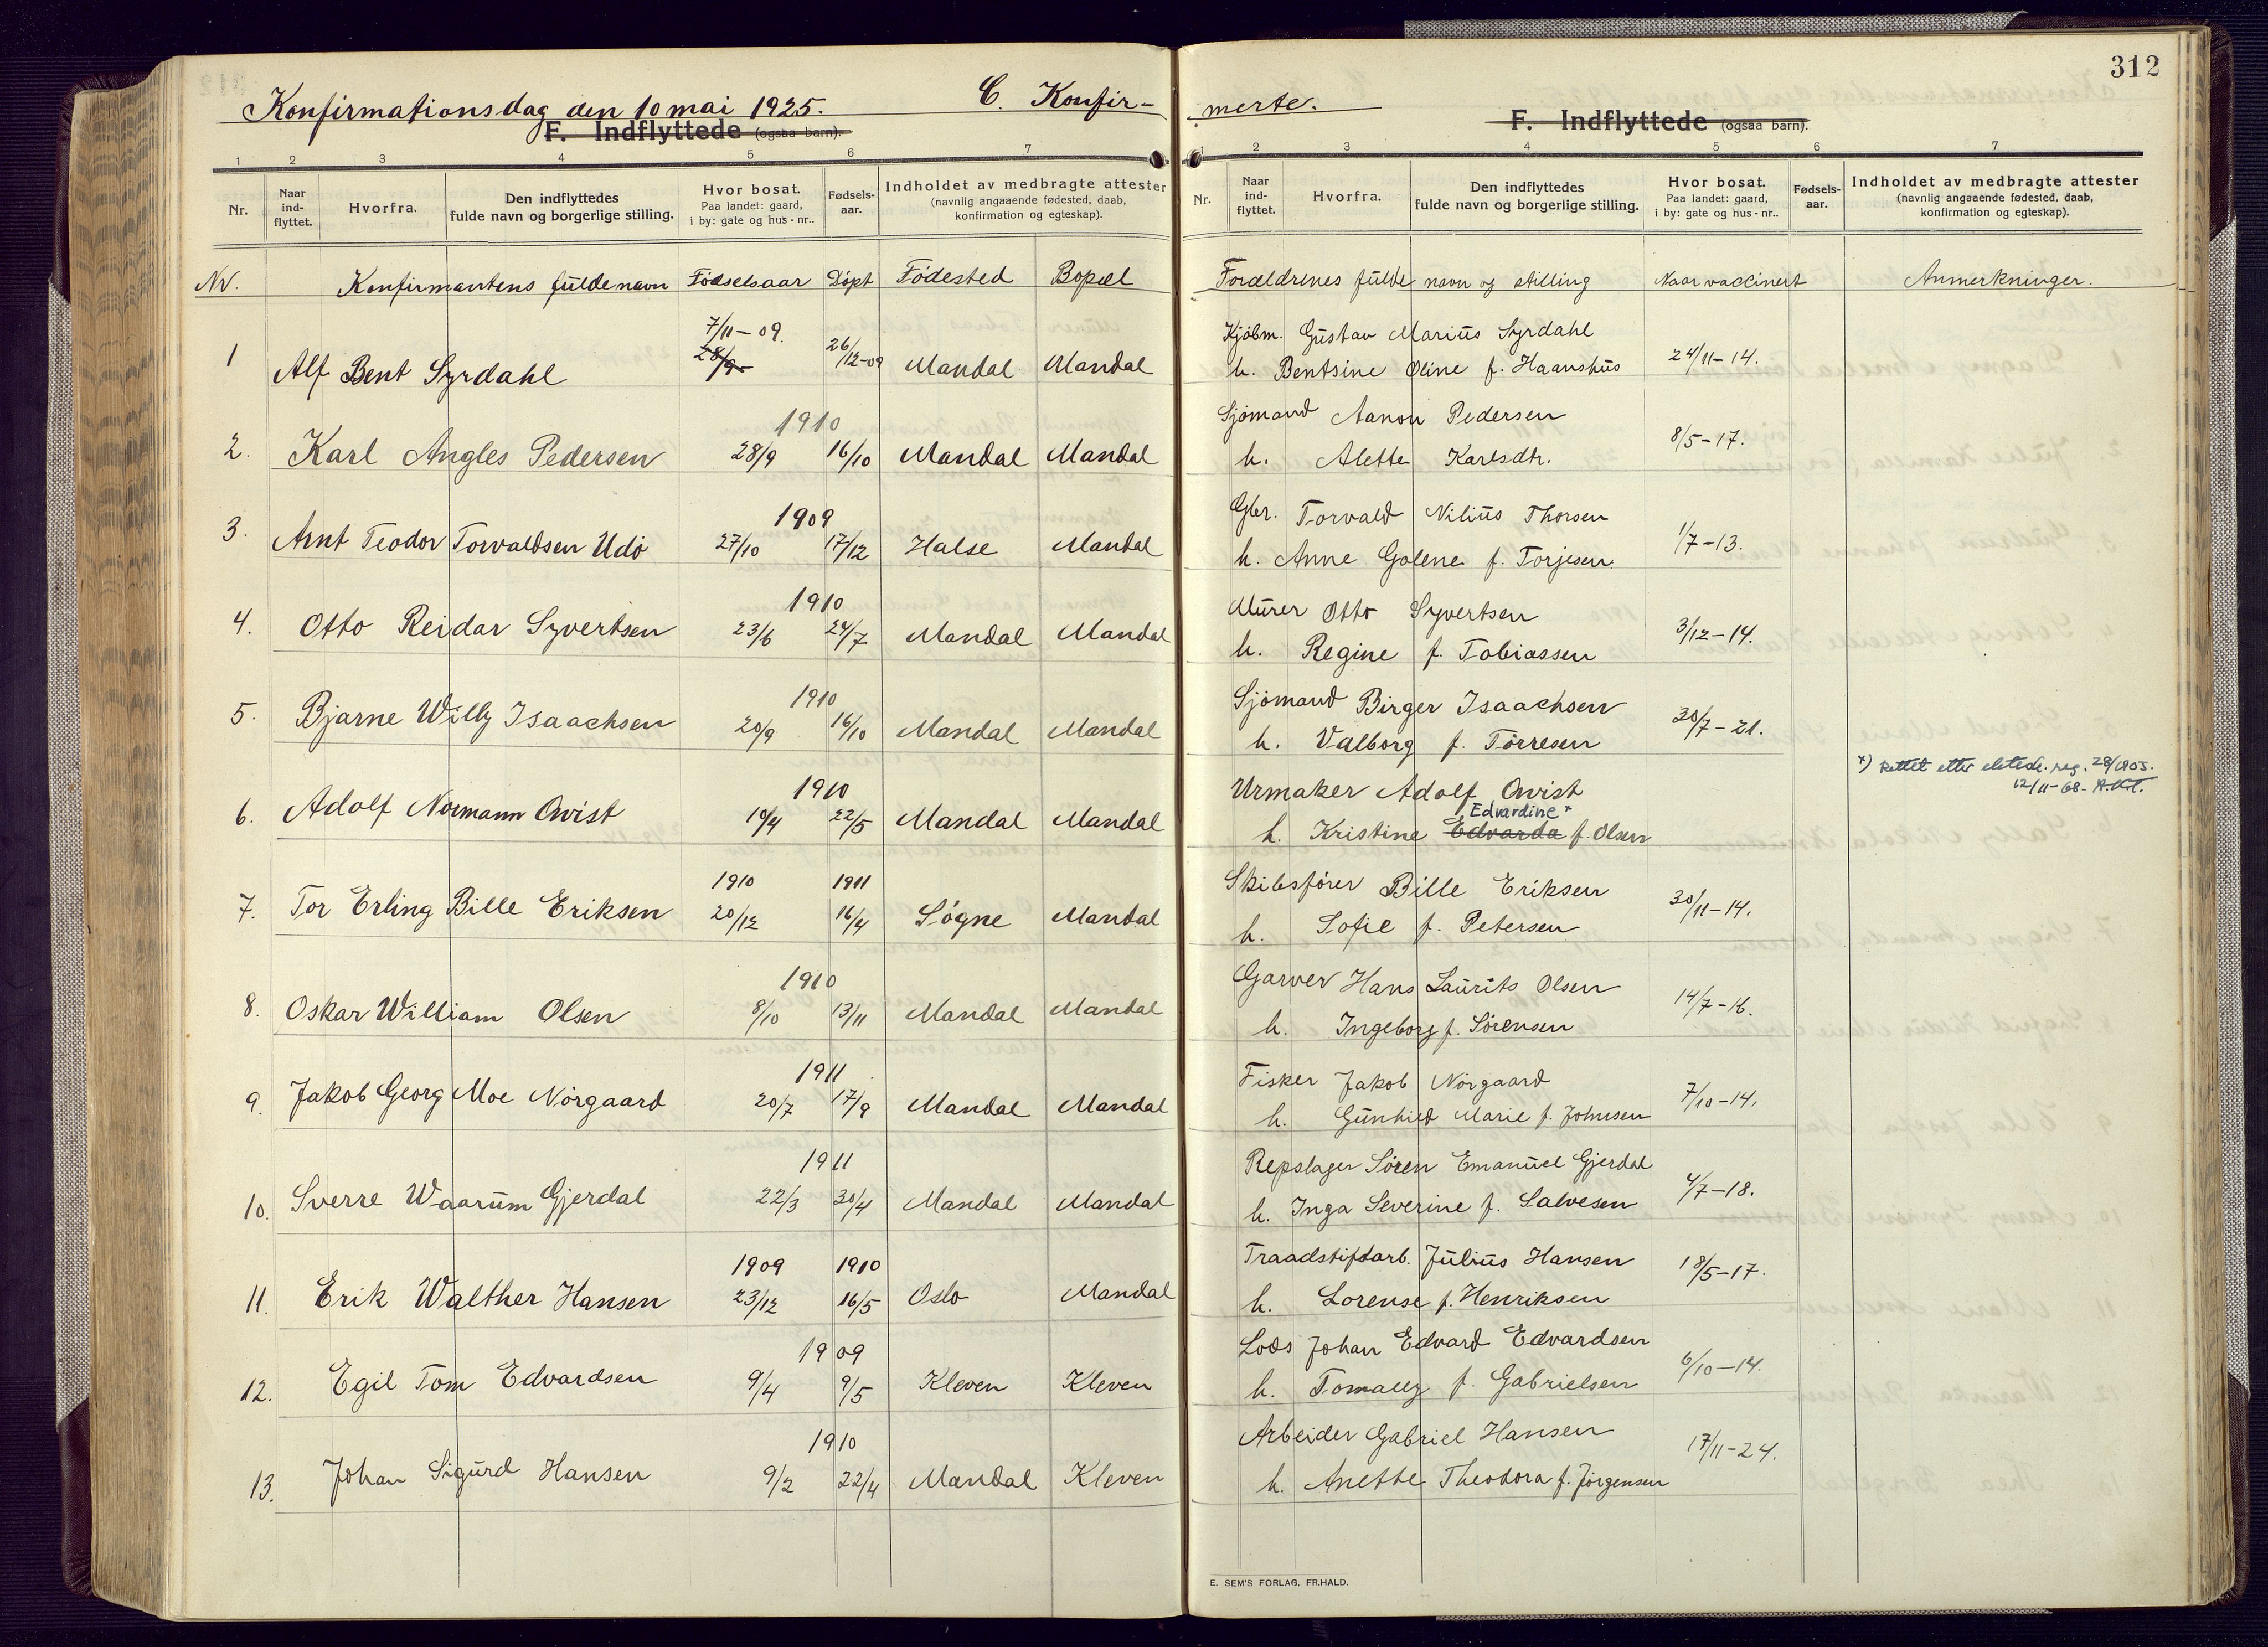 312
Konfirmationsdag den 10 mai 1925.
C. Konfir-
merte.
F. Indflyttede (ogsaa barn).
F. Indflyttede (ogsaa barn).
1 2 3 4 5 6 7
1 2 3 4 5 6 7
Nr. Naar ind-flyttet. Hvorfra. Den indflyttedes fulde navn og borgerlige stilling. Hvor bosat. Paa landet: gaard, i by: gate og hus-nr.. Fødsels-aar. Indholdet av medbragte attester (navnlig angaaende fødested, daab, konfirmation og egteskap).
Nr. Naar ind-flyttet. Hvorfra. Den indflyttedes fulde navn og borgerlige stilling. Hvor bosat. Paa landet: gaard, i by: gate og hus-nr.. Fødsels-aar. Indholdet av medbragte attester (navnlig angaaende fødested, daab, konfirmation og egteskap).
Nr. Konfirmantens fulde navn Fødselsaar Døpt Fødested Bopæl Forældrenes fulde navn og stilling Naar vaccinert Anmerkninger.
7/11-09. Kjøbm. Gustav Marius Syrdahl
1 Alf Bent Syrdahl 28/9 26/12-09 Mandal Mandal h. Bentsine Oline f. Haanshus 24/11-14.
1910 Sjømand Aanon Pedersen
2. Karl Angles Pedersen 28/9 16/10 Mandal Mandal h. Alette Karlsdtr. 8/5-17.
1909 Gbr. Torvald Nilius Thorsen
3. Arnt Teodor Torvaldsen Udø 27/10 17/12 Halse Mandal h. Anne Golene f. Torjesen 1/7-13.
1910 Murer Otto Syvertsen
4. Otto Reidar Syvertsen 23/6 24/7 Mandal Mandal h. Regine f. Tobiassen 3/12-14.
1910 Sjømand Birger Isaachsen
5. Bjarne Willy Isaachsen 20/9 16/10 Mandal Mandal h. Valborg f. Tørresen 30/7-21.
*) Rettet etter
12/11-68-
1910 Urmaker Adolf Qvist
Edvardine *
6. Adolf Normann Qvist 10/4 22/5 Mandal Mandal h. Kristine Edvarda f. Olsen
1910 1911 Skibsfører Bille Eriksen
7. Tor Erling Bille Eriksen 20/12 16/4 Søgne Mandal h. Sofie f. Petersen 30/11-14.
1910 Garver Hans Laurits Olsen
8. Oskar William Olsen 8/10 13/11 Mandal Mandal h. Ingeborg f. Sørensen 14/7-16.
1911 Fisker Jakob Nørgaard
9. Jakob Georg Moe Nørgaard 20/7 17/9 Mandal Mandal h. Gunhild Marie f. Johnsen 7/10-14.
1911 Repslager Søren Emanuel Gjerdal
10. Sverre Waarum Gjerdal 22/3 30/4 Mandal Mandal h. Inga Severine f. Salvesen 4/7-18.
1909 1910 Traadstiftarb. Julius Hansen
11. Erik Walther Hansen 23/12 16/5 Oslo Mandal h. Lorense f. Henriksen 18/5-17.
1909 Lods Johan Edvard Edvardsen
12. Egil Tom Edvardsen 9/4 9/5 Kleven Kleven h. Tomally f. Gabrielsen 6/10-14.
1910 Arbeider Gabriel Hansen
13. Johan Sigurd Hansen 9/2 22/4 Mandal Kleven h. Anette Theodora f. Jørgensen 17/11-24.
E. SEM'S FORLAG, FR.HALD.